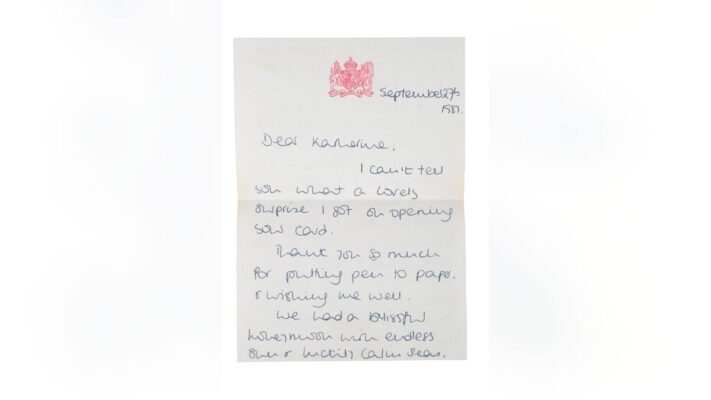 September 27th
1981.
Dear Katherine,
I can't tell
you what a lovely
surprise I got on opening
your card.
Thank you so much
for putting pen to paper,
& wishing me well.
We had a blissful
honeymoon with endless
sun & luckily calm seas.